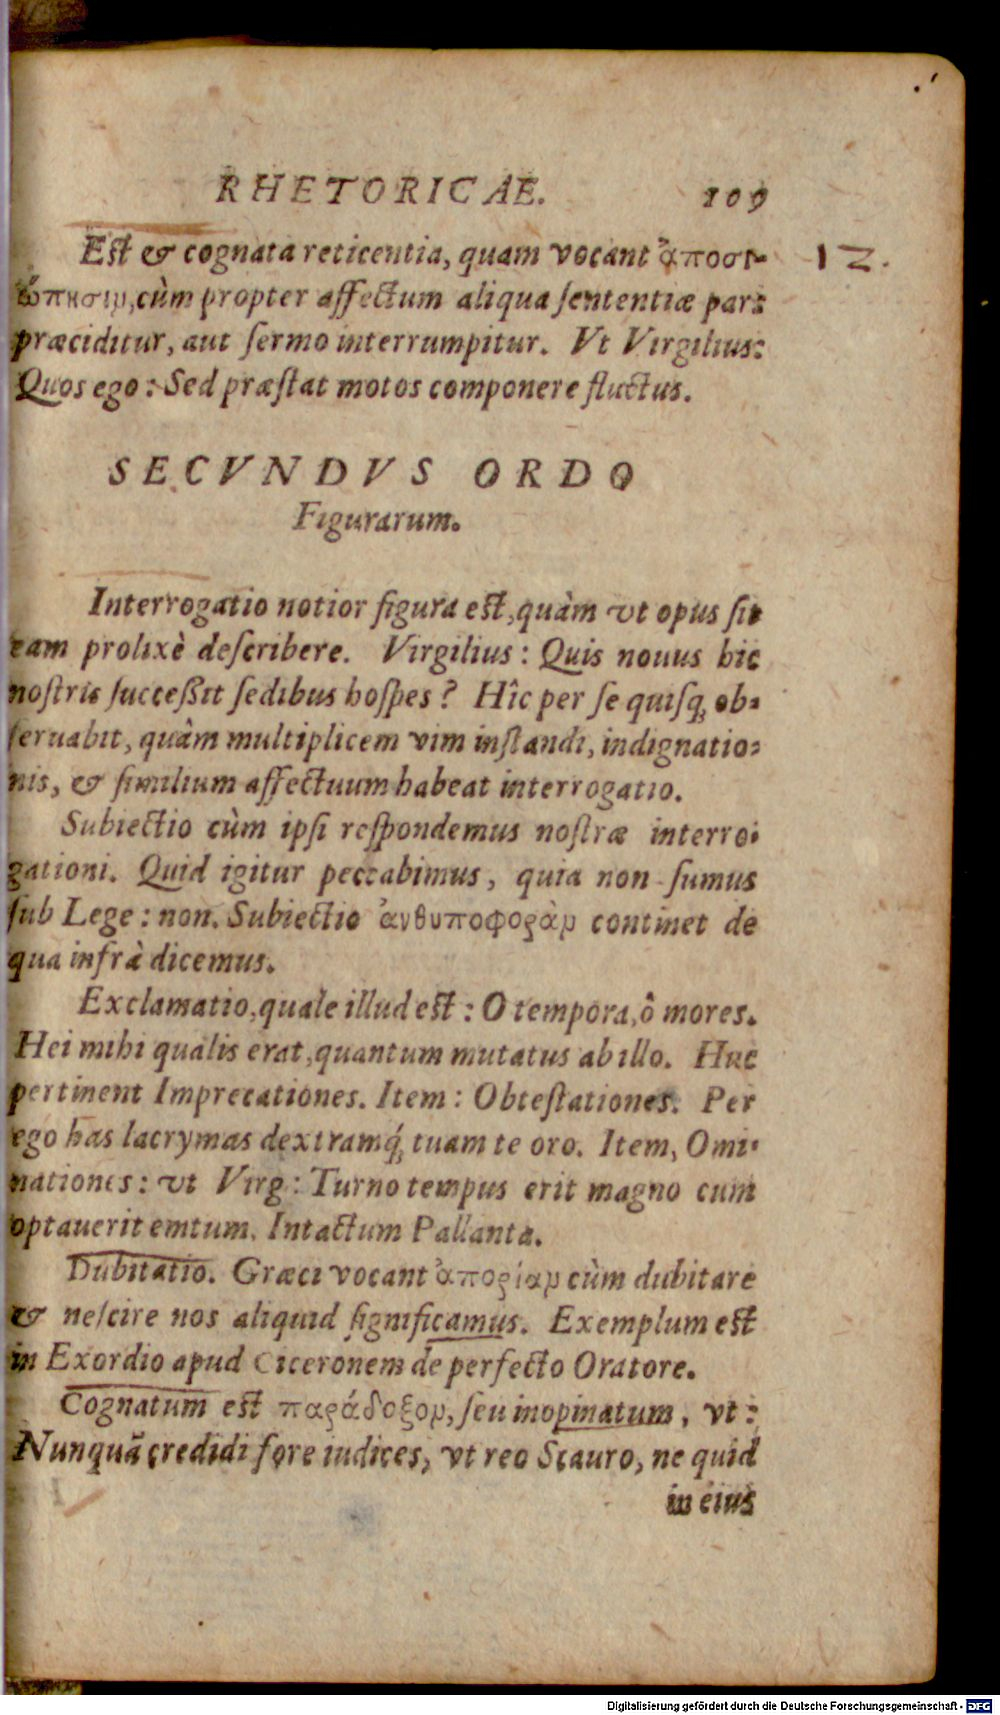 RHETORICAE. 109
Est & cognata reticentia, quam vocant ἀποσι-
ώπησιν, cùm propter affectum aliqua ſententiæ pars
præciditur, aut ſermo interrumpitur. Vt Virgilius:
Quos ego: Sed præſtat motos componere fluctus.
12.
SECVNDVS ORDO
Figurarum.
Interrogatio notior figura eſt, quàm vt opus ſit
eam prolixè deſcribere. Virgilius: Quis nouus hic
noſtris ſucceßit ſedibus hoſpes? Hîc per ſe quiſq; ob-
ſeruabit, quàm multiplicem vim inſtandi, indignatio-
nis, & ſimilium affectuum habeat interrogatio.
Subiectio cùm ipſi reſpondemus noſtræ interro-
gationi. Quid igitur peccabimus, quia non ſumus
ſub Lege: non. Subiectio ἀνθυποφορὰν continet de
qua infrà dicemus.
Exclamatio, quale illud eſt: O tempora, ô mores.
Hei mihi qualis erat, quantum mutatus ab illo. Huc
pertinent Imprecationes. Item: Obteſtationes. Per
ego has lacrymas dextramq́; tuam te oro. Item, Omi-
nationes: vt Virg: Turno tempus erit magno cum
optauerit emtum. Intactum Pallanta.
Dubitatio. Græci vocant ἀπορίαν cùm dubitare
& neſcire nos aliquid ſignificamus. Exemplum eſt
in Exordio apud Ciceronem de perfecto Oratore.
Cognatum eſt παράδοξον, ſeu inopinatum, vt:
Nunquã credidi fore iudices, vt reo Scauro, ne quid
in eius
Digitalisierung gefördert durch die Deutsche Forschungsgemeinschaft - DFG